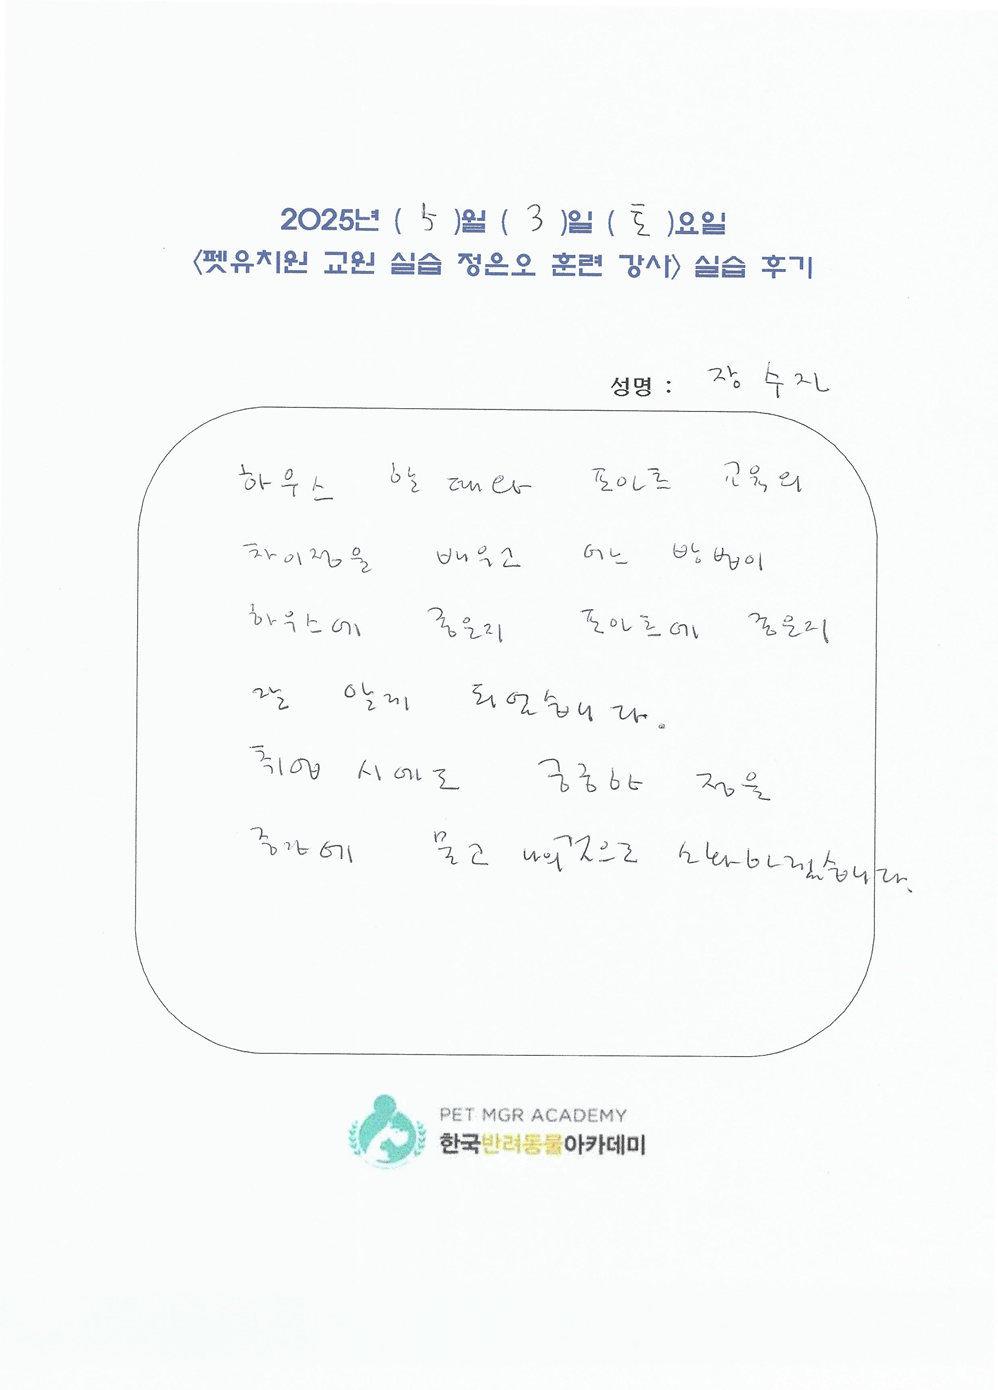 2025년 ( 5 )월 ( 3 )일 ( 토 )요일
<펫유치원 교원 실습 정은오 훈련 강사> 실습 후기
성명 : 장수진
하우스 할 때와 포아르 교육의
차이점을 배우고 어느 방법이
하우스에 좋은지 포아르에 좋은지
잘 알게 되었습니다.
취업 시에도 궁금한 점을
중간에 묻고 나의것으로 소화하겠습니다.
PET MGR ACADEMY
한국반려동물아카데미